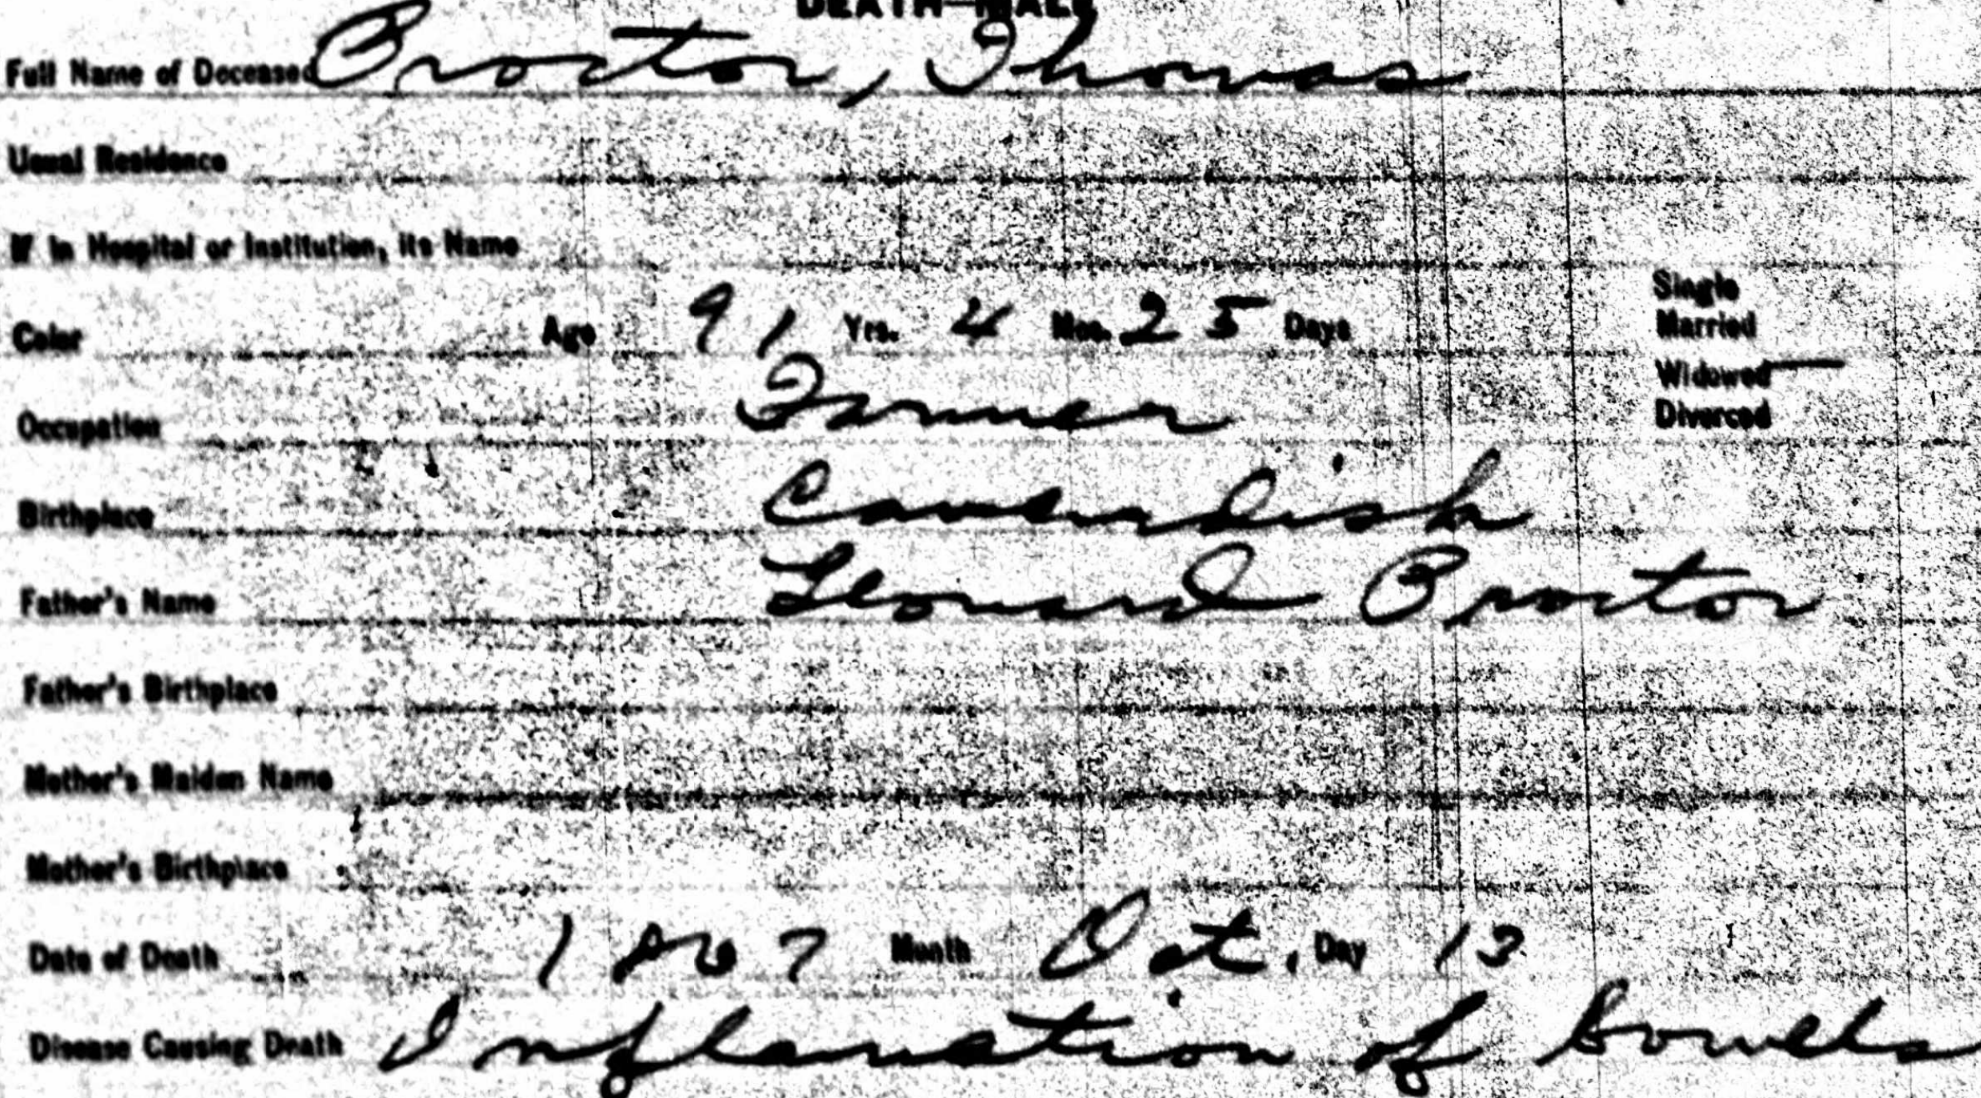 DEATH—MALE
Full Name of Deceased Proctor, Thomas
Usual Residence
If in Hospital or Institution, its Name
Single
Color Age 91 Yrs. 4 Mos. 25 Days Married
Widowed —
Occupation Farmer Divorced
Birthplace Cavendish
Father's Name Leonard Proctor
Father's Birthplace
Mother's Maiden Name
Mother's Birthplace
Date of Death 1867 Month Oct. Day 13
Disease Causing Death Inflamation of bowels